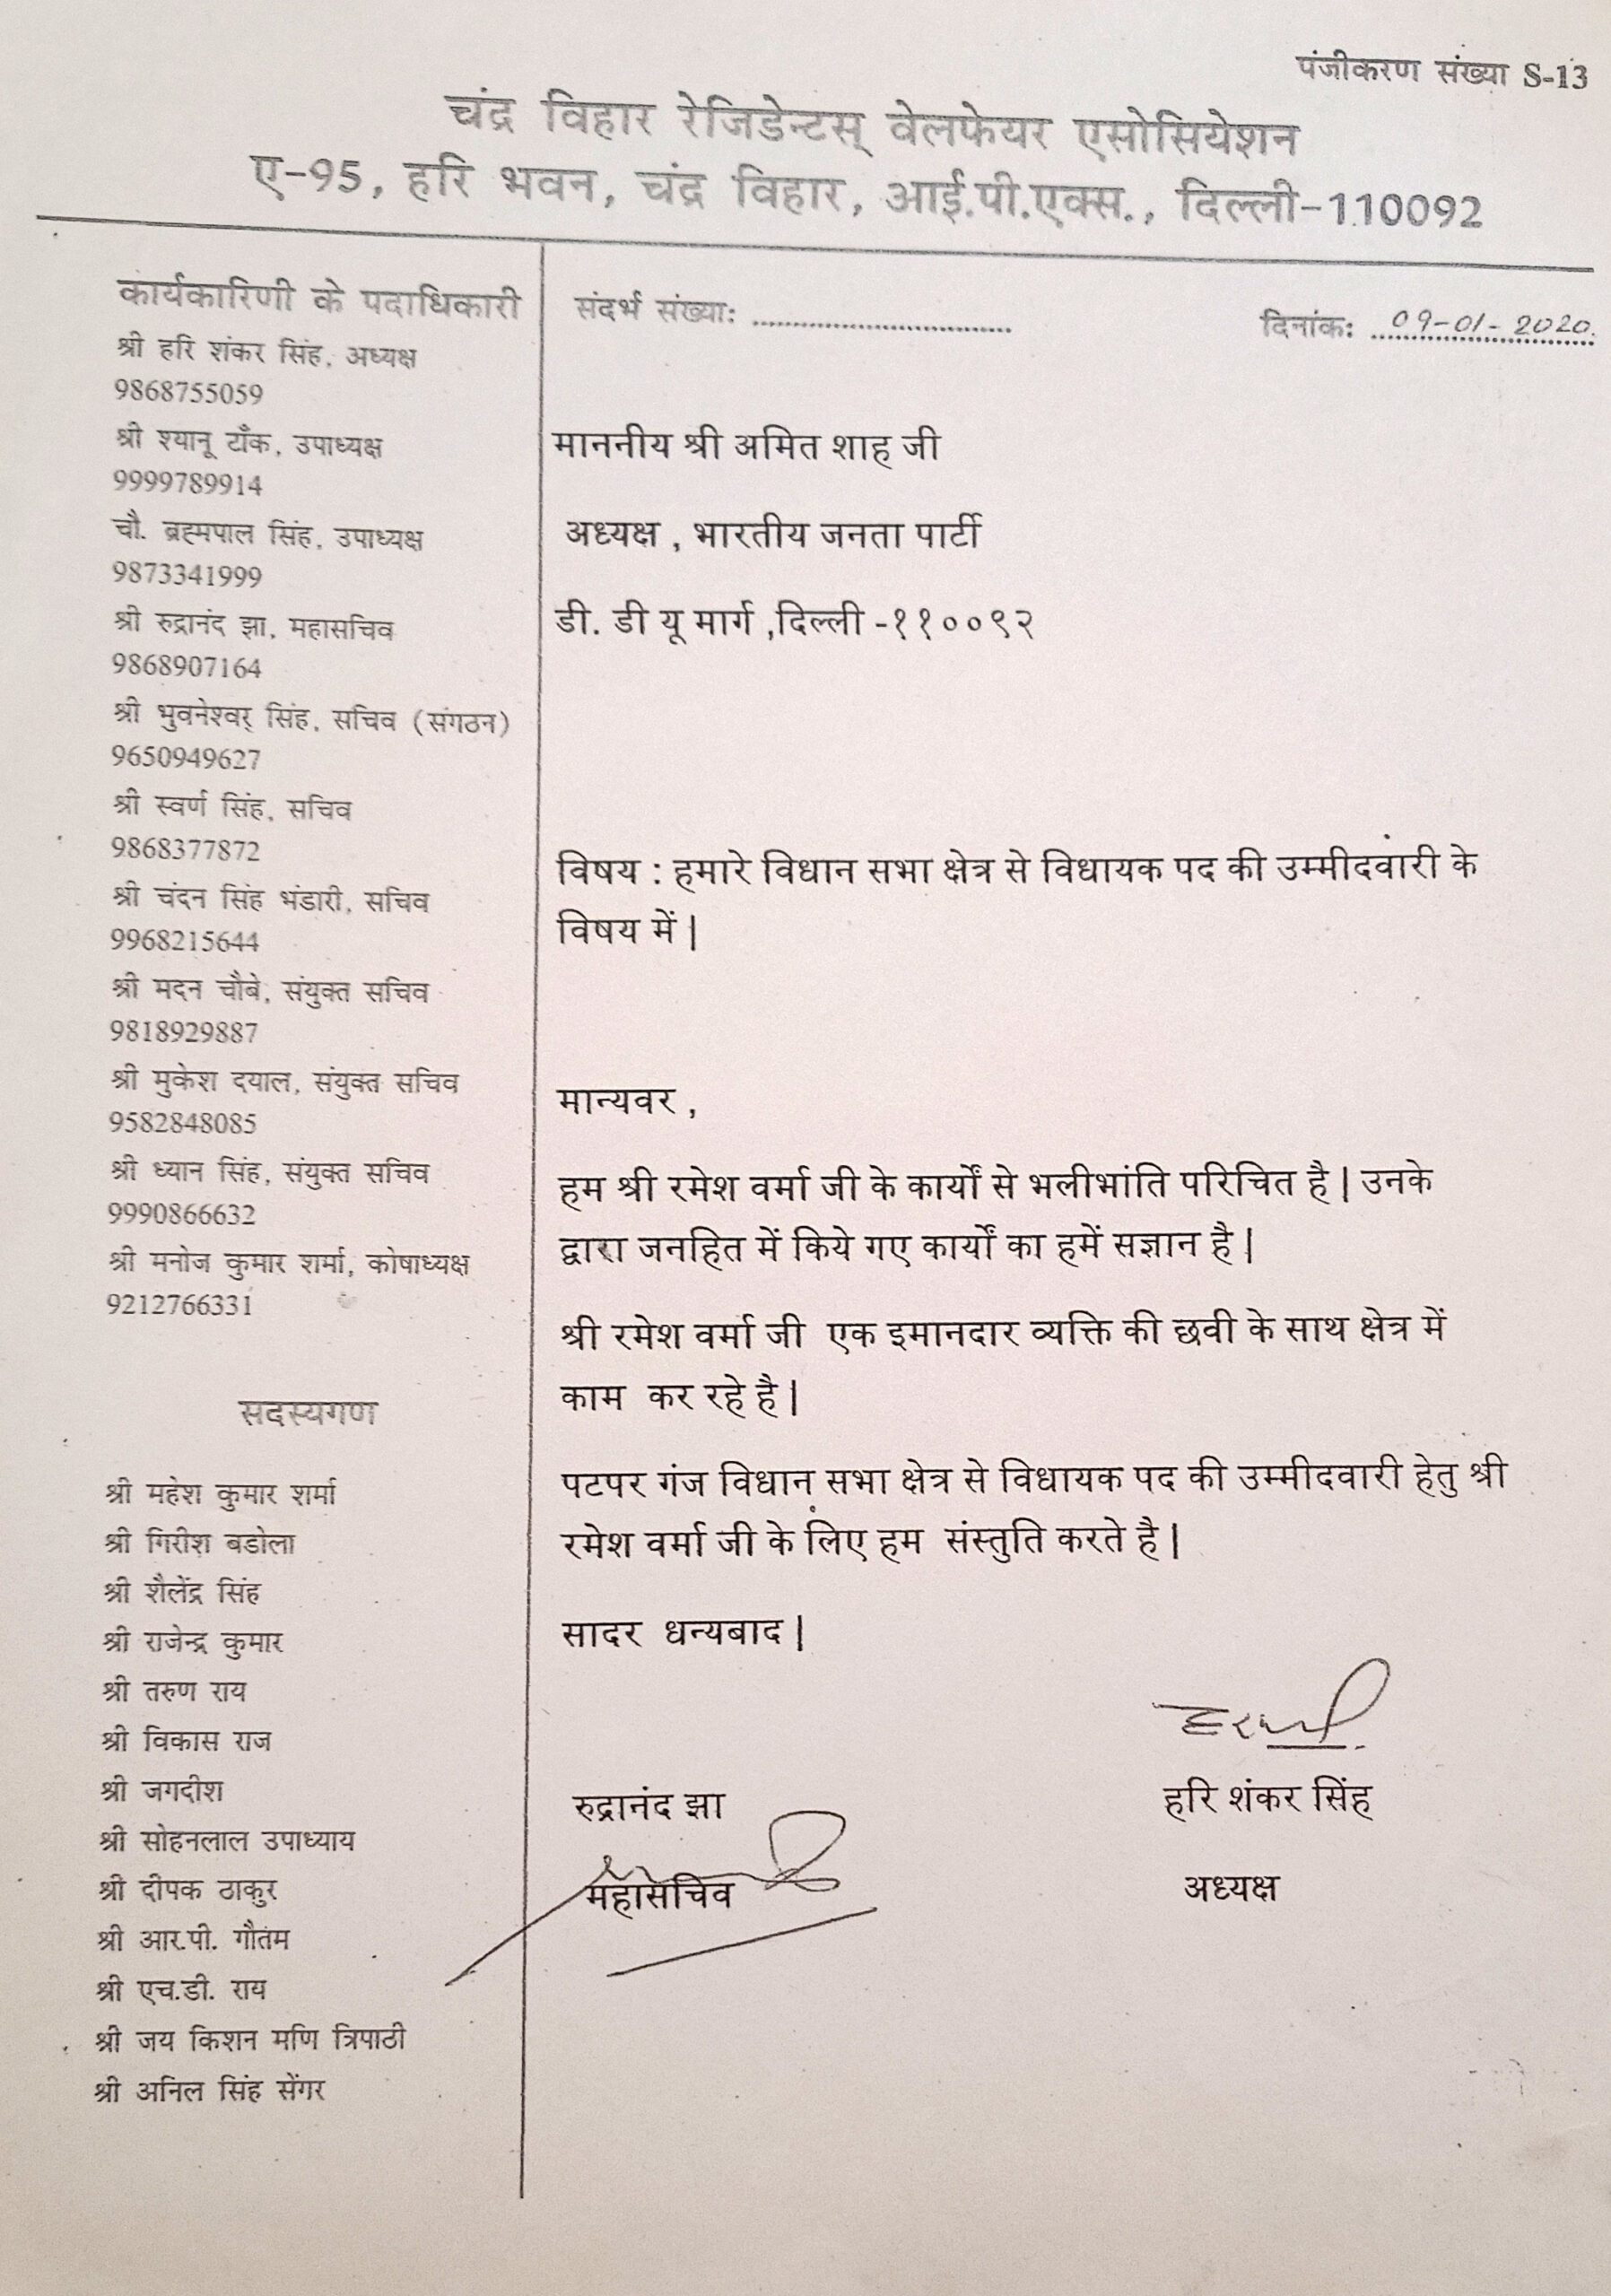 पंजीकरण संख्या S-13
चंद्र विहार रेजिडेन्टस् वेलफेयर एसोसियेशन
ए-95, हरि भवन, चंद्र विहार, आई.पी.एक्स., दिल्ली-110092
कार्यकारिणी के पदाधिकारी
श्री हरि शंकर सिंह, अध्यक्ष
9868755059
श्री श्यानू टाँक, उपाध्यक्ष
9999789914
चौ. ब्रह्मपाल सिंह, उपाध्यक्ष
9873341999
श्री रुद्रानंद झा, महासचिव
9868907164
श्री भुवनेश्वर् सिंह, सचिव (संगठन)
9650949627
श्री स्वर्ण सिंह, सचिव
9868377872
श्री चंदन सिंह भंडारी, सचिव
9968215644
श्री मदन चौबे, संयुक्त सचिव
9818929887
श्री मुकेश दयाल, संयुक्त सचिव
9582848085
श्री ध्यान सिंह, संयुक्त सचिव
9990866632
श्री मनोज कुमार शर्मा, कोषाध्यक्ष
9212766331
सदस्यगण
श्री महेश कुमार शर्मा
श्री गिरीश बडोला
श्री शैलेंद्र सिंह
श्री राजेन्द्र कुमार
श्री तरुण राय
श्री विकास राज
श्री जगदीश
श्री सोहनलाल उपाध्याय
श्री दीपक ठाकुर
श्री आर.पी. गौतम
श्री एच.डी. राय
श्री जय किशन मणि त्रिपाठी
श्री अनिल सिंह सेंगर
संदर्भ संख्या: ................................
दिनांक: 09-01-2020.
माननीय श्री अमित शाह जी
अध्यक्ष , भारतीय जनता पार्टी
डी. डी यू मार्ग ,दिल्ली -११००९२
विषय : हमारे विधान सभा क्षेत्र से विधायक पद की उम्मीदवारी के
विषय में|
मान्यवर ,
हम श्री रमेश वर्मा जी के कार्यों से भलीभांति परिचित है| उनके
द्वारा जनहित में किये गए कार्यों का हमें सज्ञान है|
श्री रमेश वर्मा जी एक इमानदार व्यक्ति की छवी के साथ क्षेत्र में
काम कर रहे है|
पटपर गंज विधान सभा क्षेत्र से विधायक पद की उम्मीदवारी हेतु श्री
रमेश वर्मा जी के लिए हम संस्तुति करते है|
सादर धन्यबाद|
रुद्रानंद झा
महासचिव
हरि शंकर सिंह
अध्यक्ष